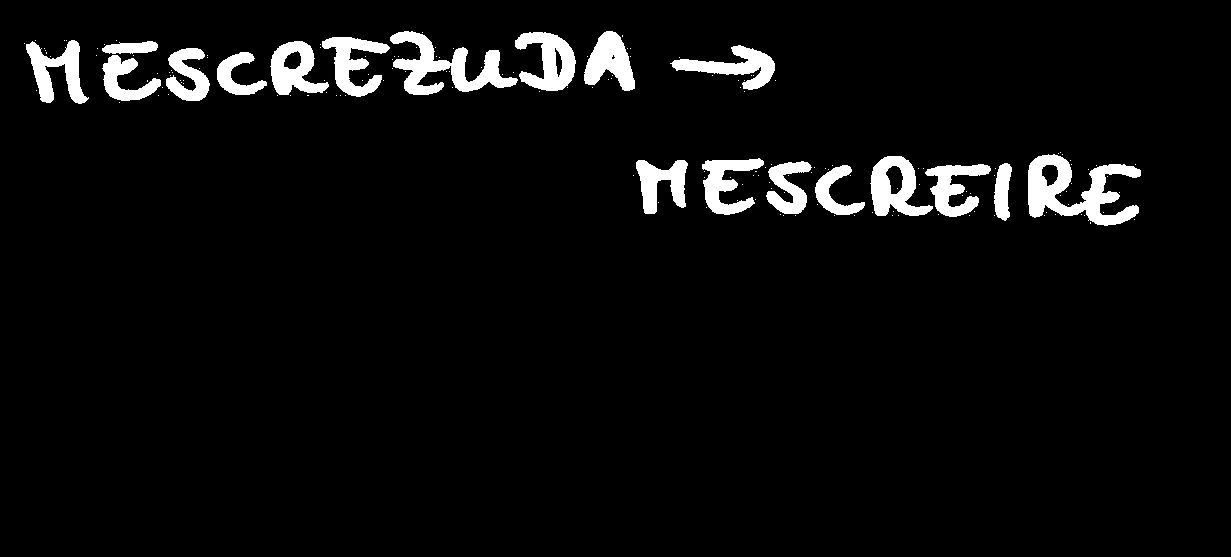 MESCREZUDA →
MESCREIRE